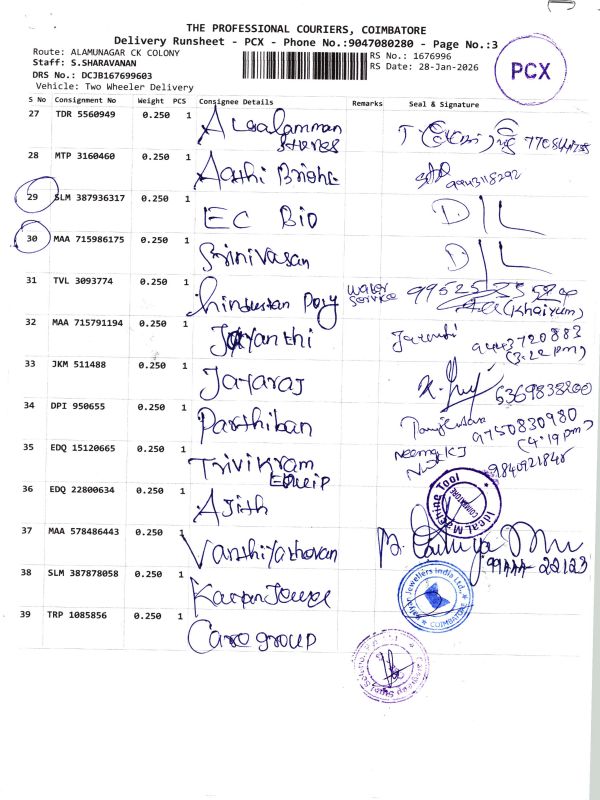 THE PROFESSIONAL COURIERS, COIMBATORE
Delivery Runsheet - PCX - Phone No.:9047080280 - Page No.:3
Route: ALAMUNAGAR CK COLONY
RS No.: 1676996
Staff: S.SHARAVANAN
RS Date: 28-Jan-2026
PCX
DRS No.: DCJB167699603
Vehicle: Two Wheeler Delivery
S No Consignment No Weight PCS Consignee Details Remarks Seal & Signature
27 TDR 5560949 0.250 1
stores
28 MTP 3160460 0.250 1 Aathi
29 SLM 387936317 0.250 1 EC Bio DIL
30 MAA 715986175 0.250 1 Srinivasan DIL
31 TVL 3093774 0.250 1 hindustan water service
(Khaiyum)
32 MAA 715791194 0.250 1 Jayanthi 9443720883
(3:22 pm)
33 JKM 511488 0.250 1 Jayaraj 6369838200
34 DPI 950655 0.250 1 Parthiban 9750830980
(4:19 pm)
35 EDQ 15120665 0.250 1 Trivikram
Equip
36 EDQ 22800634 0.250 1 Ajith
Ideal Machine Tool
COIMBATORE
37 MAA 578486443 0.250 1
22123
38 SLM 387878058 0.250 1
Kalyan Jewellers India Ltd.,
COIMBATORE
39 TRP 1085856 0.250 1 Care group